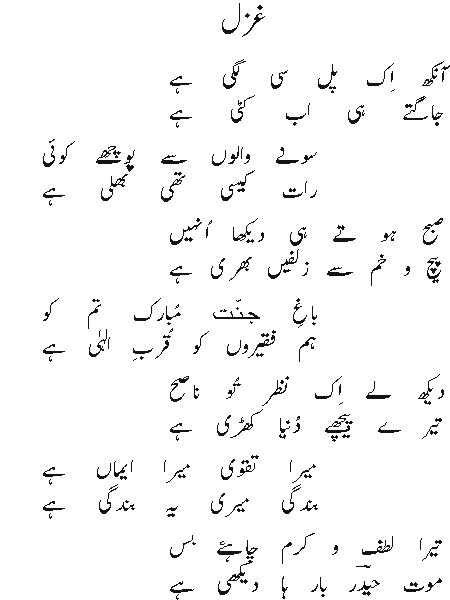 غزل
آنکھ اِک پل سی لگی ہے
جاگتے ہی اب کٹی ہے
سونے والوں سے پوچھے کوئی
رات کیسی تھی بھلی ہے
صبح ہو تے ہی دیکھا اُنہیں
پیچ و خم سے زلفیں بھری ہے
باغِ جنّت مُبارک تم کو
ہم فقیروں کو قُربِ الٰہی ہے
دیکھ لے اِک نظر تُو ناصح
تیر ے پیچھے دُنیا کھڑی ہے
میرا تقویٰ میرا ایماں ہے
بندگی میری یہ بندگی ہے
تیرا لطف و کرم چاہئے بس
موت حیدؔر بار ہا دیکھی ہے